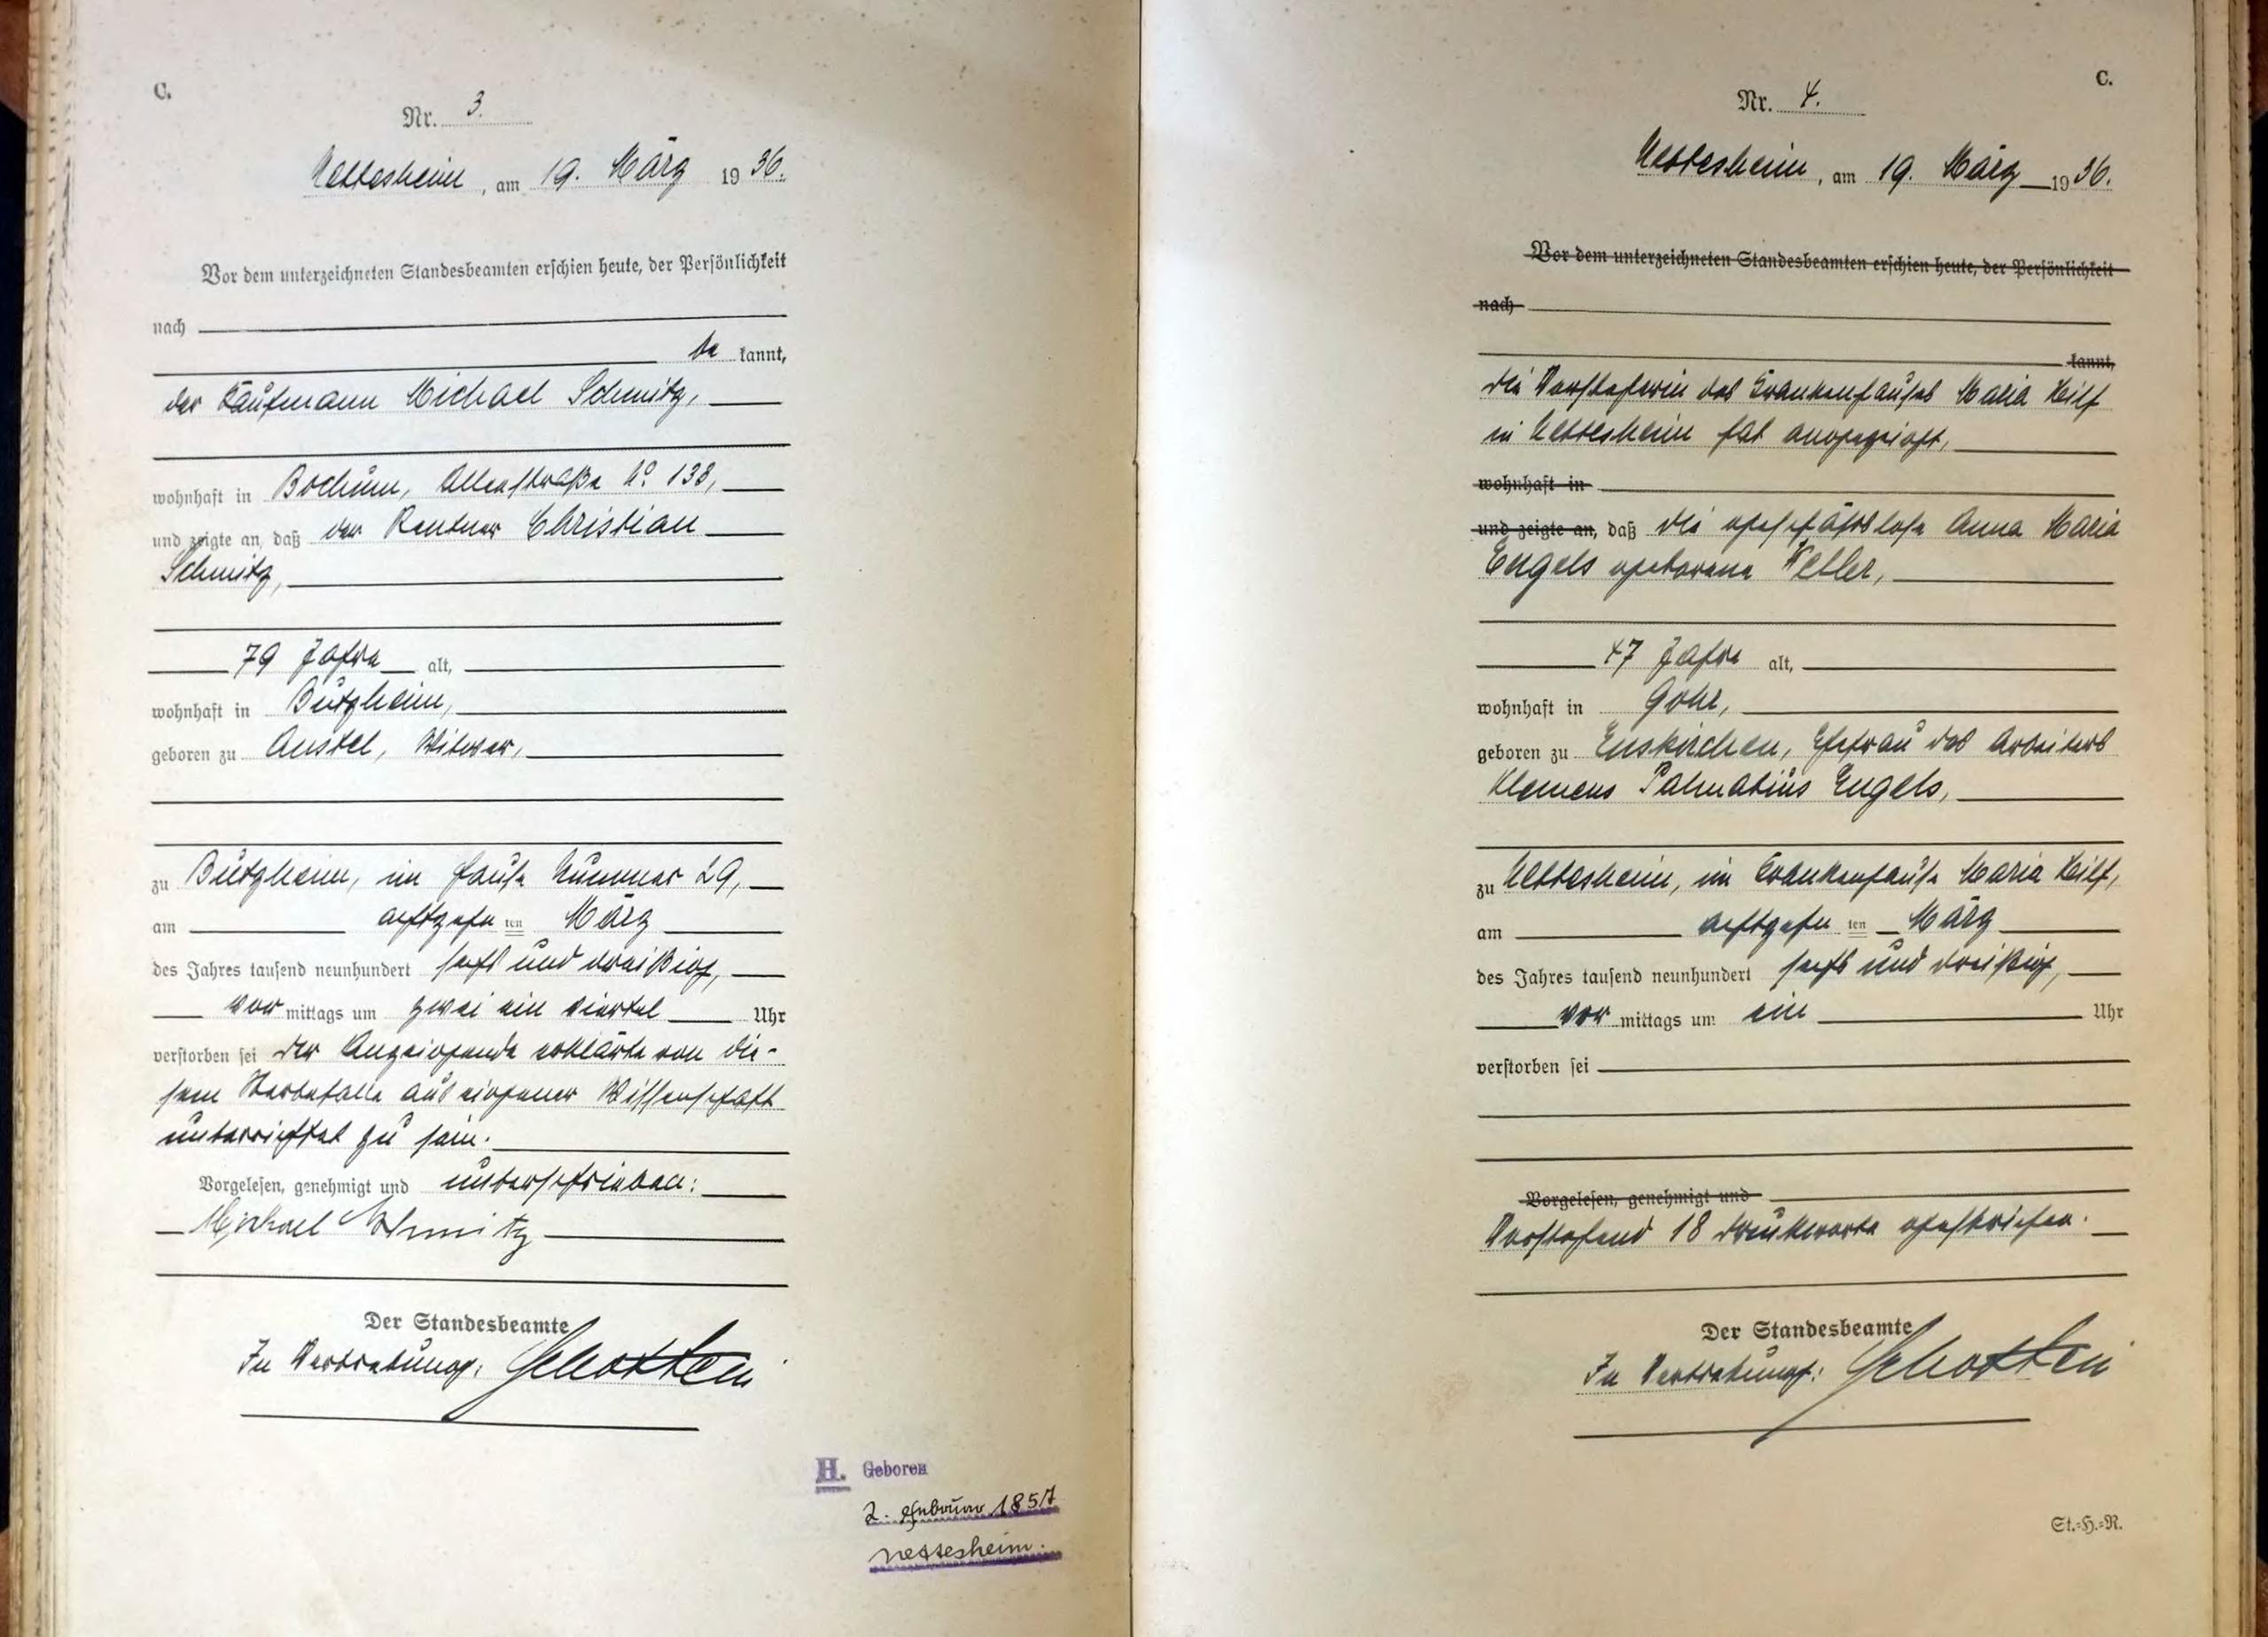 C.
Nr. 3.
Nettesheim, am 19. März 1936.
Vor dem unterzeichneten Standesbeamten erschien heute, der Persönlichkeit
nach
be kannt,
der Kaufmann Michael Schmitz,
wohnhaft in Bochum, Allestraße No 138,
und zeigte an, daß der Rentner Christian
Schmitz,
79 Jahre alt,
wohnhaft in Bützheim,
geboren zu Anstel, Witwer,
zu Bützheim, im Hause Nummer 29,
am achtzehn ten März
des Jahres tausend neunhundert sechs und dreißig,
vor mittags um zwei ein viertel Uhr
verstorben sei Der Anzeigende erklärte von die-
sem Sterbefalle aus eigener Wissenschaft
unterrichtet zu sein.
Vorgelesen, genehmigt und unterschrieben:
Michael Schmitz
Der Standesbeamte
In Vertretung: Schotten
H. Geboren
2. Februar 1857
Nettesheim.
C.
Nr. 4.
Nettesheim, am 19. März 1936.
Vor dem unterzeichneten Standesbeamten erschien heute, der Persönlichkeit
nach
kannt,
Die Vorsteherin des Krankenhauses Maria Hilf
in Nettesheim hat angezeigt,
wohnhaft in
und zeigte an, daß die geschäftslose Anna Maria
Engels geborene Weller,
47 Jahre alt,
wohnhaft in Gohr,
geboren zu Euskirchen, Ehefrau des Arbeiters
Klemens Palmatius Engels,
zu Nettesheim, im Krankenhause Maria Hilf,
am achtzehn ten März
des Jahres tausend neunhundert sechs und dreißig,
vor mittags um ein Uhr
verstorben sei
Vorgelesen, genehmigt und
Vorstehend 18 Druckworte gestrichen.
Der Standesbeamte
In Vertretung: Schotten
St.=H.=R.